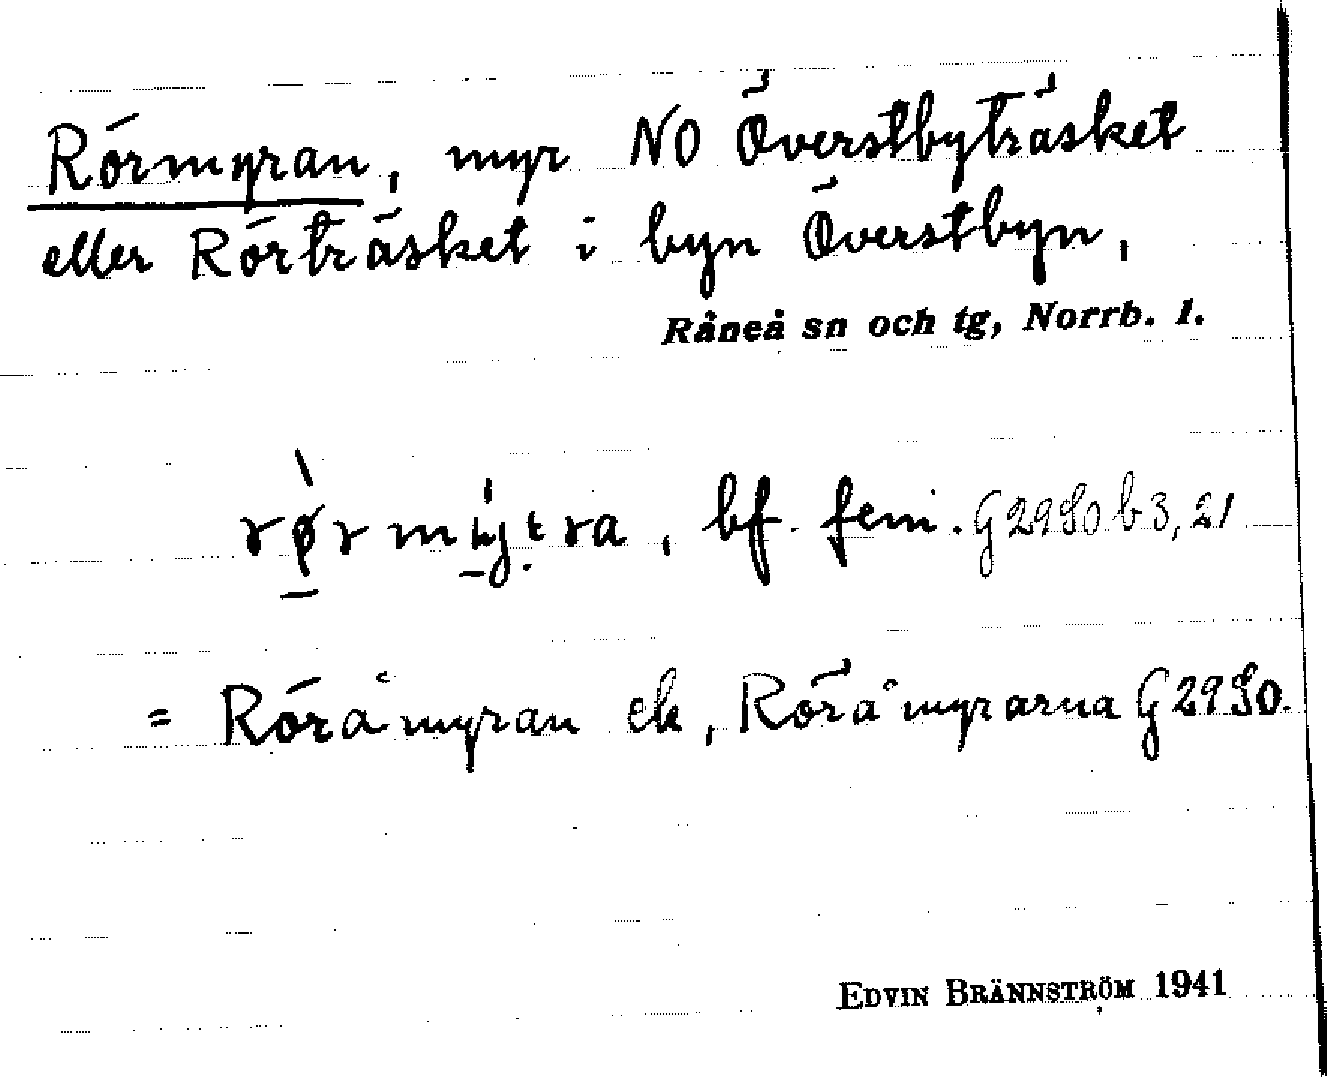 Rörmyran, myr NO Överstbyträsket
eller Rörträsket i byn Överstbyn,
Råneå sn och tg, Norrb. l.
bf. fem. G2980 b 3, 21
= Röråmyran ek, Röråmyrarna G2980.
EDVIN BRÄNNSTRÖM 1941